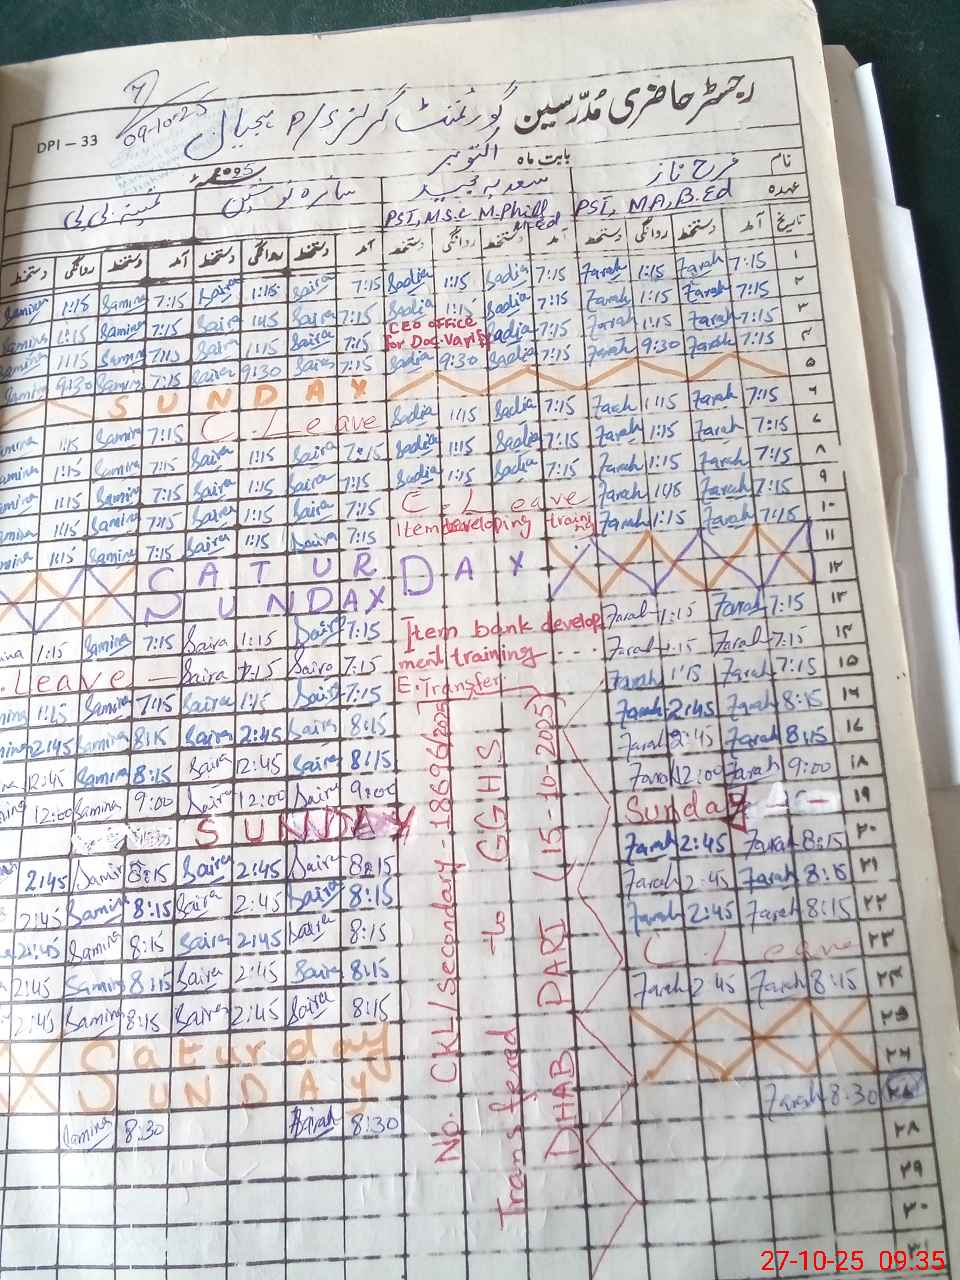 رجسٹر حاضری مُدرّسین گورنمنٹ گرلز P/S
DPI - 33
09-10-25
بابت ماہ اکتوبر
نام فرح ناز سعدیہ مجید سائرہ نوشین ثمینہ بی بی
عہدہ PST, MA, B.Ed PST, M.S.C M.Phill M-Ed
تاریخ آمد دستخط روانگی دستخط آمد دستخط روانگی دستخط آمد دستخط روانگی دستخط آمد دستخط روانگی دستخط
۱ 7:15 Farah 1:15 Farah 7:15 Sadia 1:15 Sadia 7:15 Saira 1:15 Saira 7:15 Samina 1:15 Samina
۲ 7:15 Farah 1:15 Farah 7:15 Sadia 1:15 Sadia 7:15 Saira 1:15 Saira 7:15 Samina 1:15 Samina
۳ 7:15 Farah 1:15 Farah 7:15 Sadia CEO office for Doc. Varif 7:15 Saira 1:15 Saira 7:15 Samina 1:15 Samina
۴ 7:15 Farah 9:30 Farah 7:15 Sadia 9:30 Sadia 7:15 Saira 9:30 Saira 7:15 Samina 9:30 Samina
۵ SUNDAY
۶ 7:15 Farah 1:15 Farah 7:15 Sadia 1:15 Sadia C. Leave 7:15 Samina 1:15
۷ 7:15 Farah 1:15 Farah 7:15 Sadia 1:15 Sadia 7:15 Saira 1:15 Saira 7:15 Samina 1:15
۸ 7:15 Farah 1:15 Farah 7:15 Sadia 1:15 Sadia 7:15 Saira 1:15 Saira 7:15 Samina 1:15
۹ 7:15 Farah Farah C. Leave 7:15 Saira 1:15 Saira 7:15 Samina 1:15
۱۰ 7:15 Farah 1:15 Farah Item developing training 7:15 Saira 1:15 Saira 7:15 Samina 1:15
۱۱ SATURDAY
۱۲ SUNDAY
۱۳ 7:15 Farah 1:15 Farah Item bank develop 7:15 Saira 1:15 Saira 7:15 Samina 1:15
۱۴ 7:15 Farah 1:15 Farah ment training 7:15 Saira Saira Leave
۱۵ 7:15 Farah 1:15 Farah E. Transfer 7:15 Saira 1:15 Saira 7:15 Samina 1:15
8:15 Farah 2:45 Farah 8:15 Saira 2:45 Saira 8:15 Samina 2:45
8:15 Farah 2:45 Farah 8:15 Saira 2:45 Saira 8:15 Samina 2:45
۱۸ 9:00 Farah 12:00 Farah 9:00 Saira 12:00 Saira 9:00 Samina 12:00
۱۹ Sunday SUNDAY
۲۰ 8:15 Farah 2:45 Farah 8:15 Saira 2:45 Saira 8:15 Samina 2:45
۲۱ 8:15 Farah 2:45 Farah 8:15 Saira 2:45 Saira 8:15 Samina 2:45
۲۲ 8:15 Farah 2:45 Farah 8:15 Saira 2:45 Saira 8:15 Samina 2:45
۲۳ C. Leave 8:15 Saira 2:45 Saira 8:15 Samina 2:45
۲۴ 8:15 Farah 2:45 Farah 8:15 Saira 2:45 Saira 8:15 Samina 2:45
۲۵ Saturday
۲۶ SUNDAY
8:30 Farah 8:30 8:30 Samina
۲۸
۲۹
۳۰
۳۱
No. CKL/secondary-18696/2025)
Transfered to GGHS
DHAB PARI (15-10-2025)
27-10-25 09:35